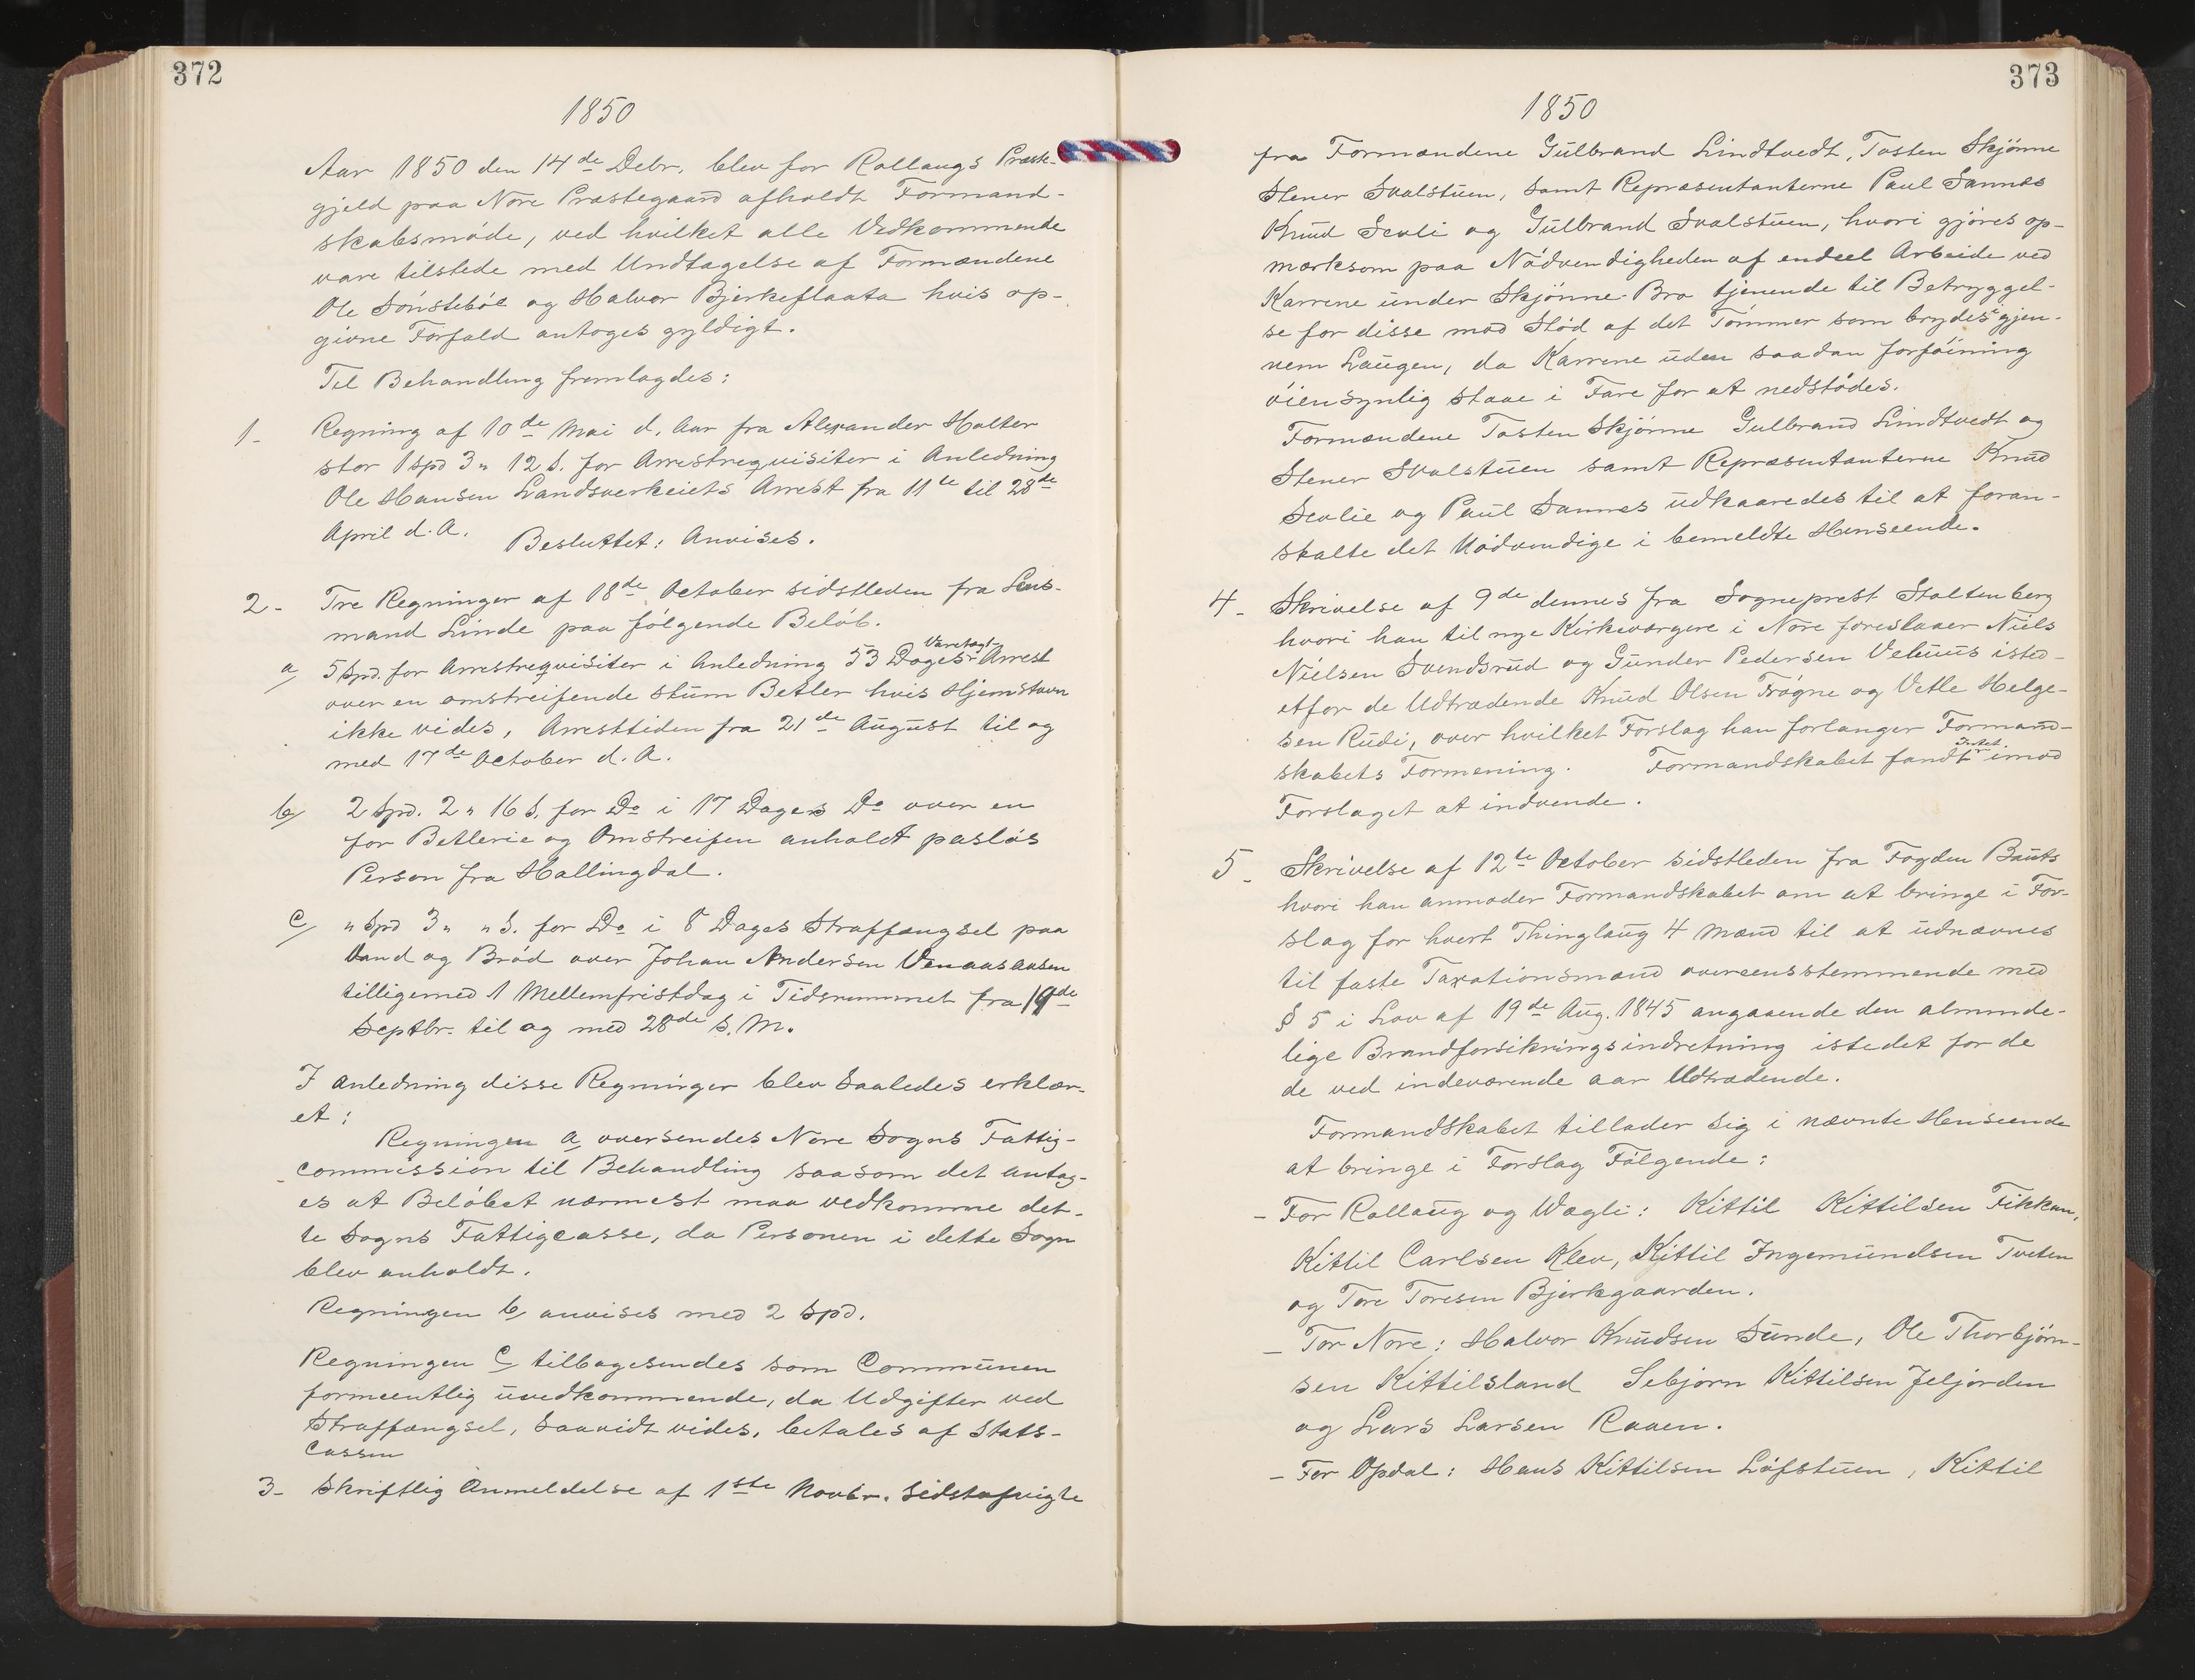 372
1850
Aar 1850 den 14de Debr. blev for Rollaugs Præst-
gjeld paa Nore Præstegaard afholdt Formand-
skabsmöde, ved hvilket alle Vedkommende
vare tilstede med Undtagelse af Formændene
Ole Sönsteböl og Halvor Bjerkeflaata hvis op-
givne Forfald antoges gyldigt.
Til Behandling fremlagdes:
1- Regning af 10de Mai d. Aar fra Alexander Holter
stor 1 spd 3 " 12 S. for Arrestrequisiter i Anledning
Ole Hansen Landsverkeiets Arrest fra 11te til 28de
April d.A. Besluttet: Anvises.
2- Tre Regninger af 18de October sidstleden fra Lens-
mand Linde paa fölgende Belöb.
a/ 5 Spd. for Arrestrequisiter i Anledning 53 Dages Varetægt- Arrest
over en omstreifende stum Betler hvis Hjemstavn
ikke vides, Arresttiden fra 21de August til og
med 17de October d. A.
b/ 2 Spd. 2 " 16 S. for Do i 17 Dagers Do over en
for Betlerie og Omstreifen anholdt paslös
Person fra Hallingdal.
c/ " Spd 3 " " S. for Do i 8 Dages Straffængsel paa
Vand og Bröd over Johan Andersen
tilligemed 1 Mellemfristdag i Tidsrummet fra 19de
Septbr. til og med 28de S. M.
I Anledning disse Regninger blev saaledes erklær-
et:
Regningen a, oversendes Nore Sogns Fattig-
commission til Behandling saasom det antag-
es at Belöbet nærmest maa vedkomme det-
te Sogns Fattigcasse, da Personen i dette Sogn
blev anholdt.
Regningen b/ anvises med 2 Spd.
Regningen C/ tilbagesendes som Communen
formeentlig uvedkommende, da Udgifter ved
Straffængsel, saavidt vides, betales af Stats-
Cassen
3- Skriftlig Anmeldelse af 1ste Novbr. sidstafvigte
373
1850
fra Formændene Gulbrand Lindtvedt, Tosten Skjönne
Stener Svalstuen, samt Repræsentanterne Paul Sannes
Knud Sevli og Gulbrand Svalstuen, hvori gjöres op-
mærksom paa Nödvendigheden af endeel Arbeide ved
Karrene under Skjönne-Bro tjenende til Betryggel-
se for disse mod Stöd af det Tömmer som brydes gjen-
nem Laugen, da Karrene uden saadan forföining
öiensynlig staae i Fare for at nedstödes.
Formændene Tosten Skjönne Gulbrand Lindtvedt og
Stener Svalstuen samt Repræsentanterne Knud
Sevlie og Paul Sannes udkaaredes til at foran-
stalte det Nödvendige i bemeldte Henseende.
4- Skrivelse af 9de dennes fra Sogneprest Stoltenberg
hvori han til nye Kirkeværgere i Nore foreslaaer Niels
Nielsen Svendsrud og Gunder Pedersen Vehuus isted-
etfor de Udtrædende Knud Olsen Frögne og Vetle Helge-
sen Rudi, over hvilket Forslag han forlanger Formand-
skabets Formening. Formandskabet fandt Intet imod
Forslaget at indvende.
5- Skrivelse af 12te October sidstleden fra Fogden Bauts
hvori han anmoder Formandskabet om at bringe i For-
slag for hvert Thinglaug 4 Mænd til at udnævnes
til faste Taxationsmænd overeensstemmende med
§ 5 i Lov af 19de Aug. 1845 angaaende den alminde-
lige Brandforsikringsindretning istedet for de
de ved indeværende aar Udtrædende.
Formandskabet tillader sig i nævnte Henseende
at bringe i Forslag Fölgende:
- For Rollaug og Vægli: Kittil Kittilsen Fikkan,
Kittil Carlsen Klev, Kittil Ingemundsen Tveten
og Tore Toresen Bjerkgaarden.
- For Nore: Halvor Knudsen Sunde, Ole Thorbjörn-
sen Kittilsland Sebjörn Kittilsen Jeljorden
og Lars Larsen Raaen.
- For Opdal: Hans Kittilsen Löfstuen, Kittil